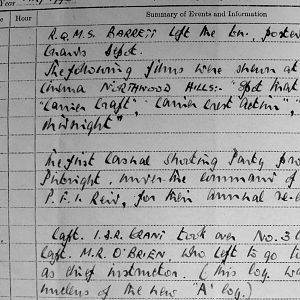 Year
Hour Summary of Events and Information
R.Q.M.S. BARRETT left the bn., posted
Guards Depot.
The following films were shown at
cinema NORTHWOOD HILLS:- "Spot that
"Carrier Craft", "Carrier Crest Action",
midnight"
The first Casual Shooting Party pro
Pirbright, under the command of
P.F.I. Reid, for their annual re-c
Capt. I.D.R. GRANT took over No. 3 C
Capt. M.R. O'BRIEN, who left to go to
as chief instructor. (this coy. was
nucleus of the new 'A' Coy.)